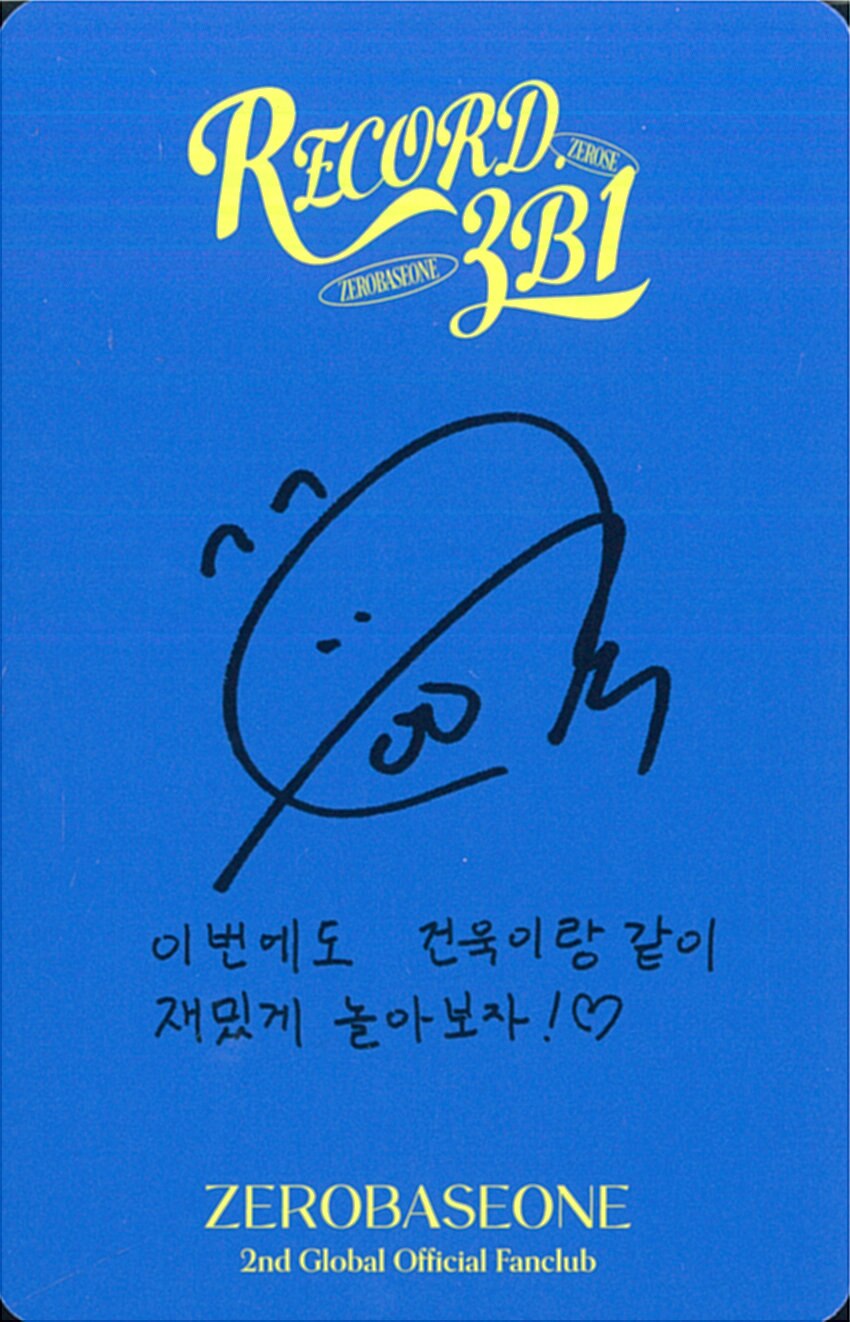 RECORD.
ZEROSE
ZB1
ZEROBASEONE
이번에도 건욱이랑 같이
재밌게 놀아보자!♡
ZEROBASEONE
2nd Global Official Fanclub